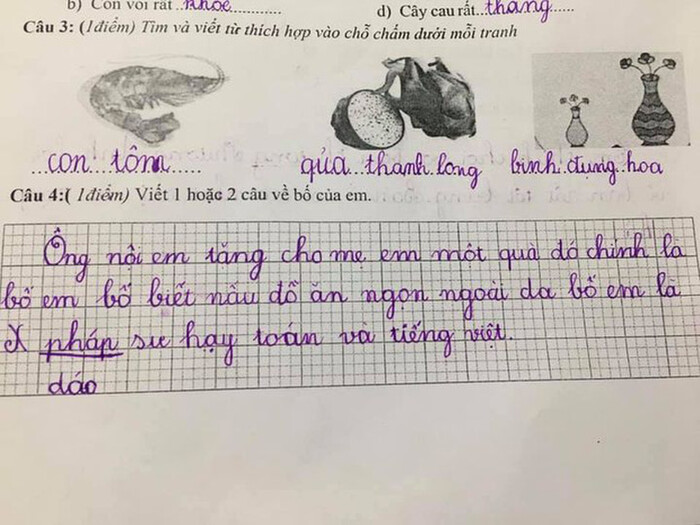 b) Con voi rất..khỏe............ d) Cây cau rất..thẳng......
Câu 3: (1điểm) Tìm và viết từ thích hợp vào chỗ chấm dưới mỗi tranh
...con...tôm...... qủa...thanh.long bình.đưng.hoa
Câu 4:( 1điểm) Viết 1 hoặc 2 câu về bố của em.
Ông nội em tặng cho mẹ em một quà đó chính là
bố em bố biết nấu đồ ăn ngọn ngoài da bố em là
pháp sư hạy toán và tiếng việt.
dáo